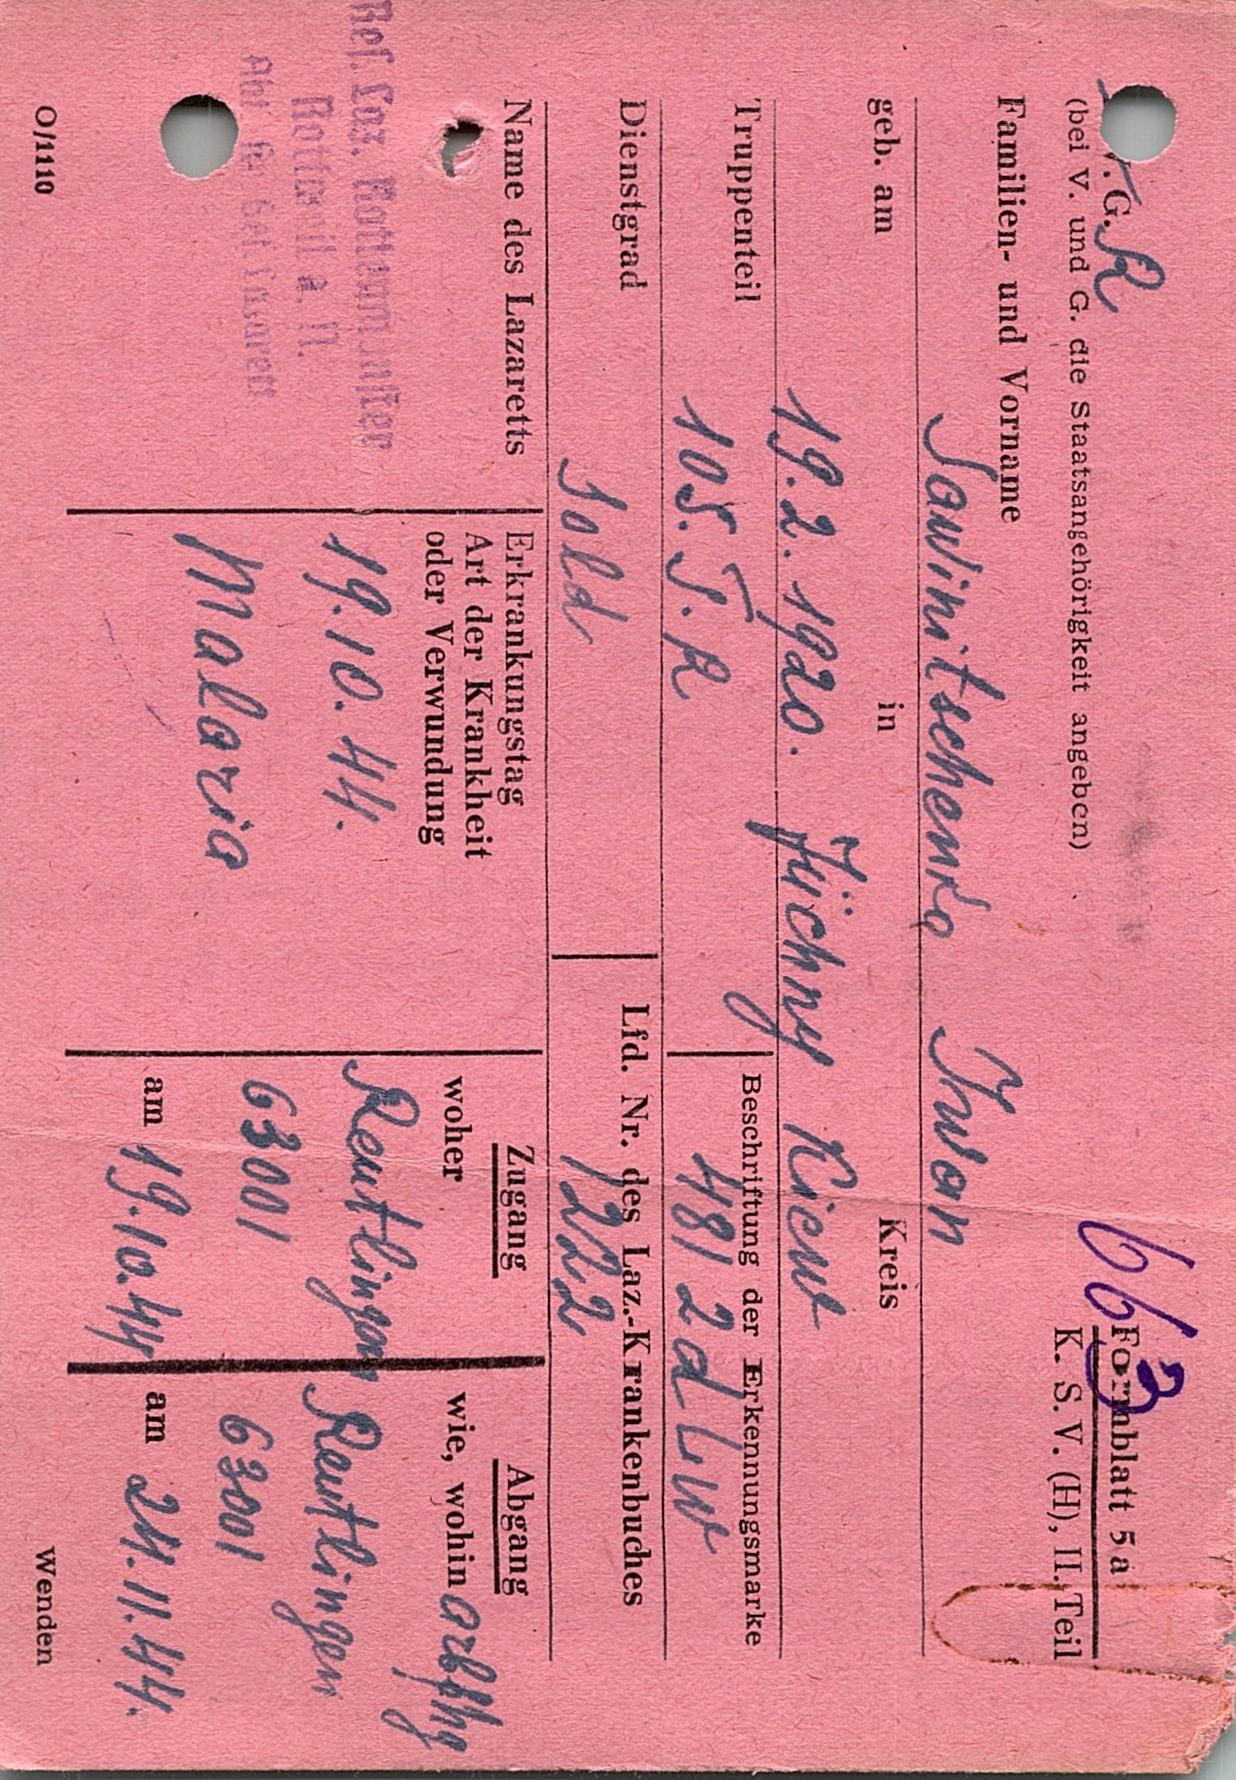 V. G. R
663
(bei V. und G. die Staatsangehörigkeit angeben)
Formblatt 5 a
K. S. V. (H), II. Teil
Familien- und Vorname
Sawinitschenko Iwan
geb. am in Kreis
19. 2. 1920. Jüchny Kiew
Truppenteil Beschriftung der Erkennungsmarke
105. J. R 481 2d Lw
Dienstgrad Lfd. Nr. des Laz.-Krankenbuches
Sold 1222
Name des Lazaretts
Res. Laz. Rottenmünster
Rottweil a. N.
Erkrankungstag
Art der Krankheit
oder Verwundung
19. 10. 44.
Malaria
Zugang
woher
Reutlingen
63001
am 19. 10. 44
Abgang
wie, wohin arbfhg
Reutlingen
63001
am 24. 11. 44.
O/1110
Wenden